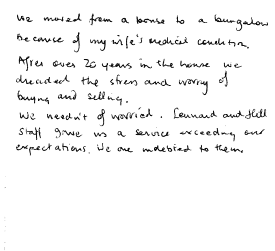 We moved from a house to a bungalow
because of my wife's medical condition.
After over 20 years in the house we
dreaded the stress and worry of
buying and selling.
We needn't of worried. Leonard and Hill
staff gave us a service exceeding our
expectations. We are indebted to them.